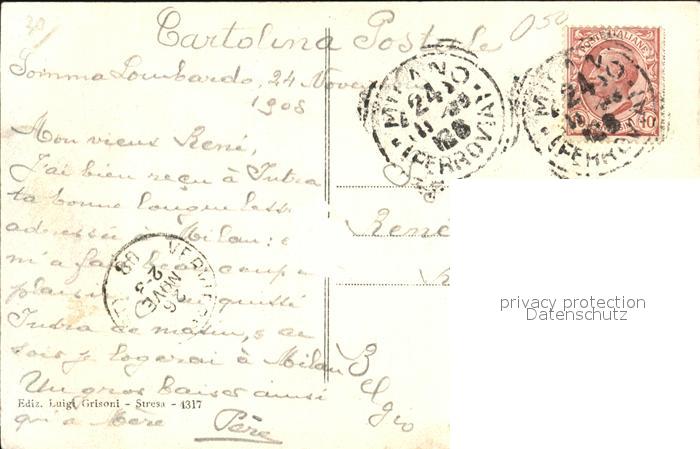 Cartolina Postale
Somma Lombardo, 24 Novem
1908
Mon vieux René,
J'ai bien reçu à Intra
ta bonne longue
adressée à Milan:
m'a fait beaucoup
plaisir quitté
Intra ce matin, ce
soir je logerai à Milan
Un gros baiser ainsi
qu'à Mère
Père
Ediz. Luigi Grisoni - Stresa - 1317
René
Belgio
MILANO
24
(FERROVIA)
MILANO
24
(FERROVIA)
POSTE ITALIANE
10
26
NOVE
08
privacy protection
Datenschutz